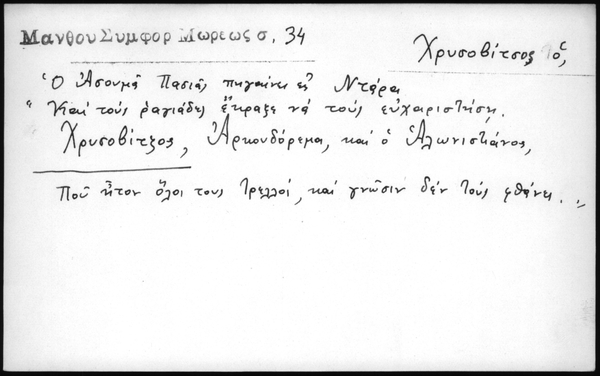 Μανθου Συμφορ Μωρεως σ. 34
Χρυσοβίτσος, ὁ,
Ὁ Ἀσουμᾶ Πασιᾶς πηγαίνει εἰς Ντάρα
" Καὶ τοὺς ῥαγιάδες ἔκραξε νὰ τοὺς εὐχαριστήσῃ.
Χρυσοβίτζος, Ἀρκουδόρεμα, καὶ ὁ Ἀλωνιστιάνος,
Ποῦ ἦτον ὅλοι τους τρελλοί, καὶ γνῶσιν δέν τούς φθάνει. „